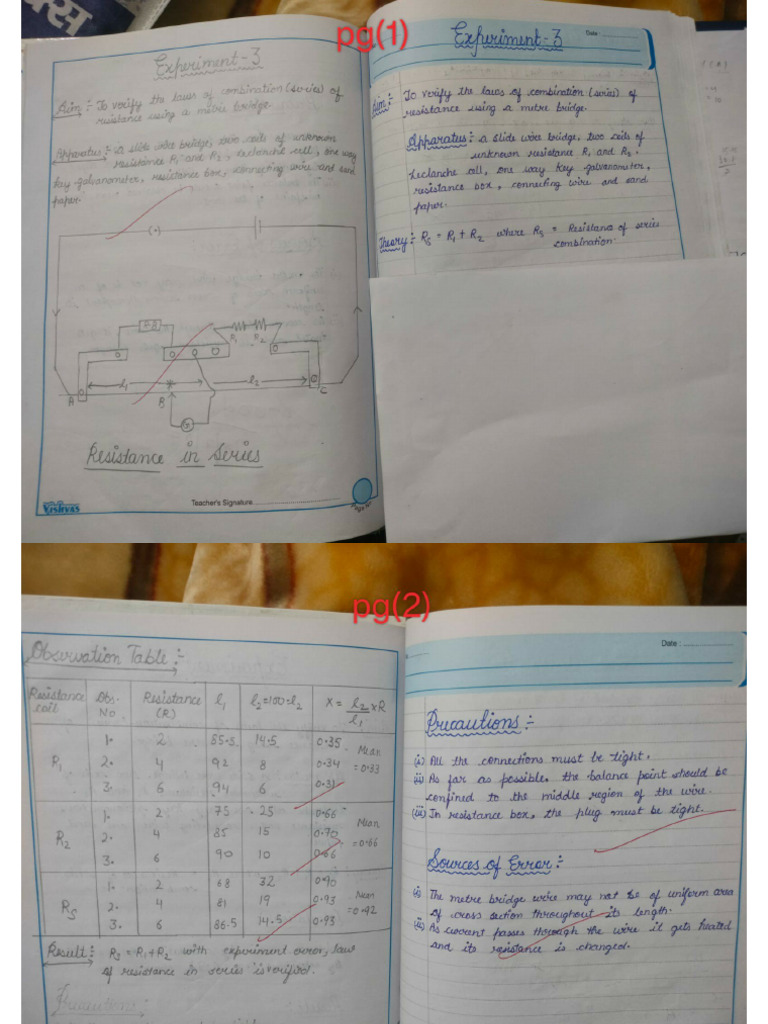 pg(1)
Experiment-3
Aim :- To verify the laws of combination (series) of
resistance using a metre bridge.
Apparatus :- a slide wire bridge, two coils of unknown
resistance R1 and R2, Leclanche cell, one way
key galvanometer, resistance box, connecting wire and sand
paper.
(•)
R.B
R1 R2
l1 l2
A B C
G
Resistance in Series
Teacher's Signature
Experiment-3
Date :
Aim :- To verify the laws of combination (series) of
resistance using a metre bridge.
Apparatus :- a slide wire bridge, two coils of
unknown resistance R1 and R2,
Leclanche cell, one way key galvanometer,
resistance box, connecting wire and sand
paper.
Theory :- Rs = R1 + R2 where Rs = Resistance of series
combination.
pg(2)
Observation Table :-
Resistance coil Obs. No Resistance (R) l1 l2=100-l2 X = l2/l1 xR
R1 1. 2 85.5 14.5 0.35 Mean = 0.33
2. 4 92 8 0.34
3. 6 94 6 0.31
R2 1. 2 75 25 0.66 Mean =0.66
2. 4 85 15 0.70
3. 6 90 10 0.66
Rs 1. 2 68 32 0.90 Mean =0.92
2. 4 81 19 0.93
3. 6 86.5 14.5 0.93
Result :- Rs = R1+R2 with experiment error, law
of resistance in series is verified.
Precautions :-
Date :
Precautions :-
(i) All the connections must be tight.
(ii) As far as possible, the balance point should be
confined to the middle region of the wire.
(iii) In resistance box, the plug must be tight.
Sources of Error :-
(i) The metre bridge wire may not be of uniform area
of cross section throughout its length.
(ii) As current passes through the wire it gets heated
and its resistance is changed.